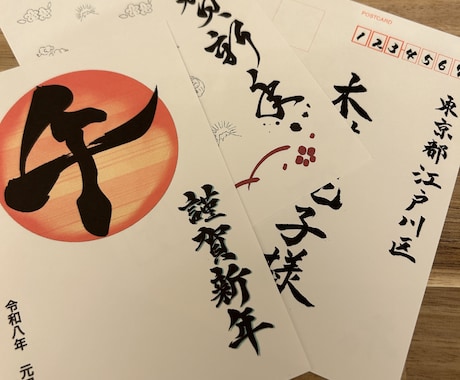 午
謹賀新年
令和八年 元
賀新年
POSTCARD
123456
東京都江戸川区
木
子様